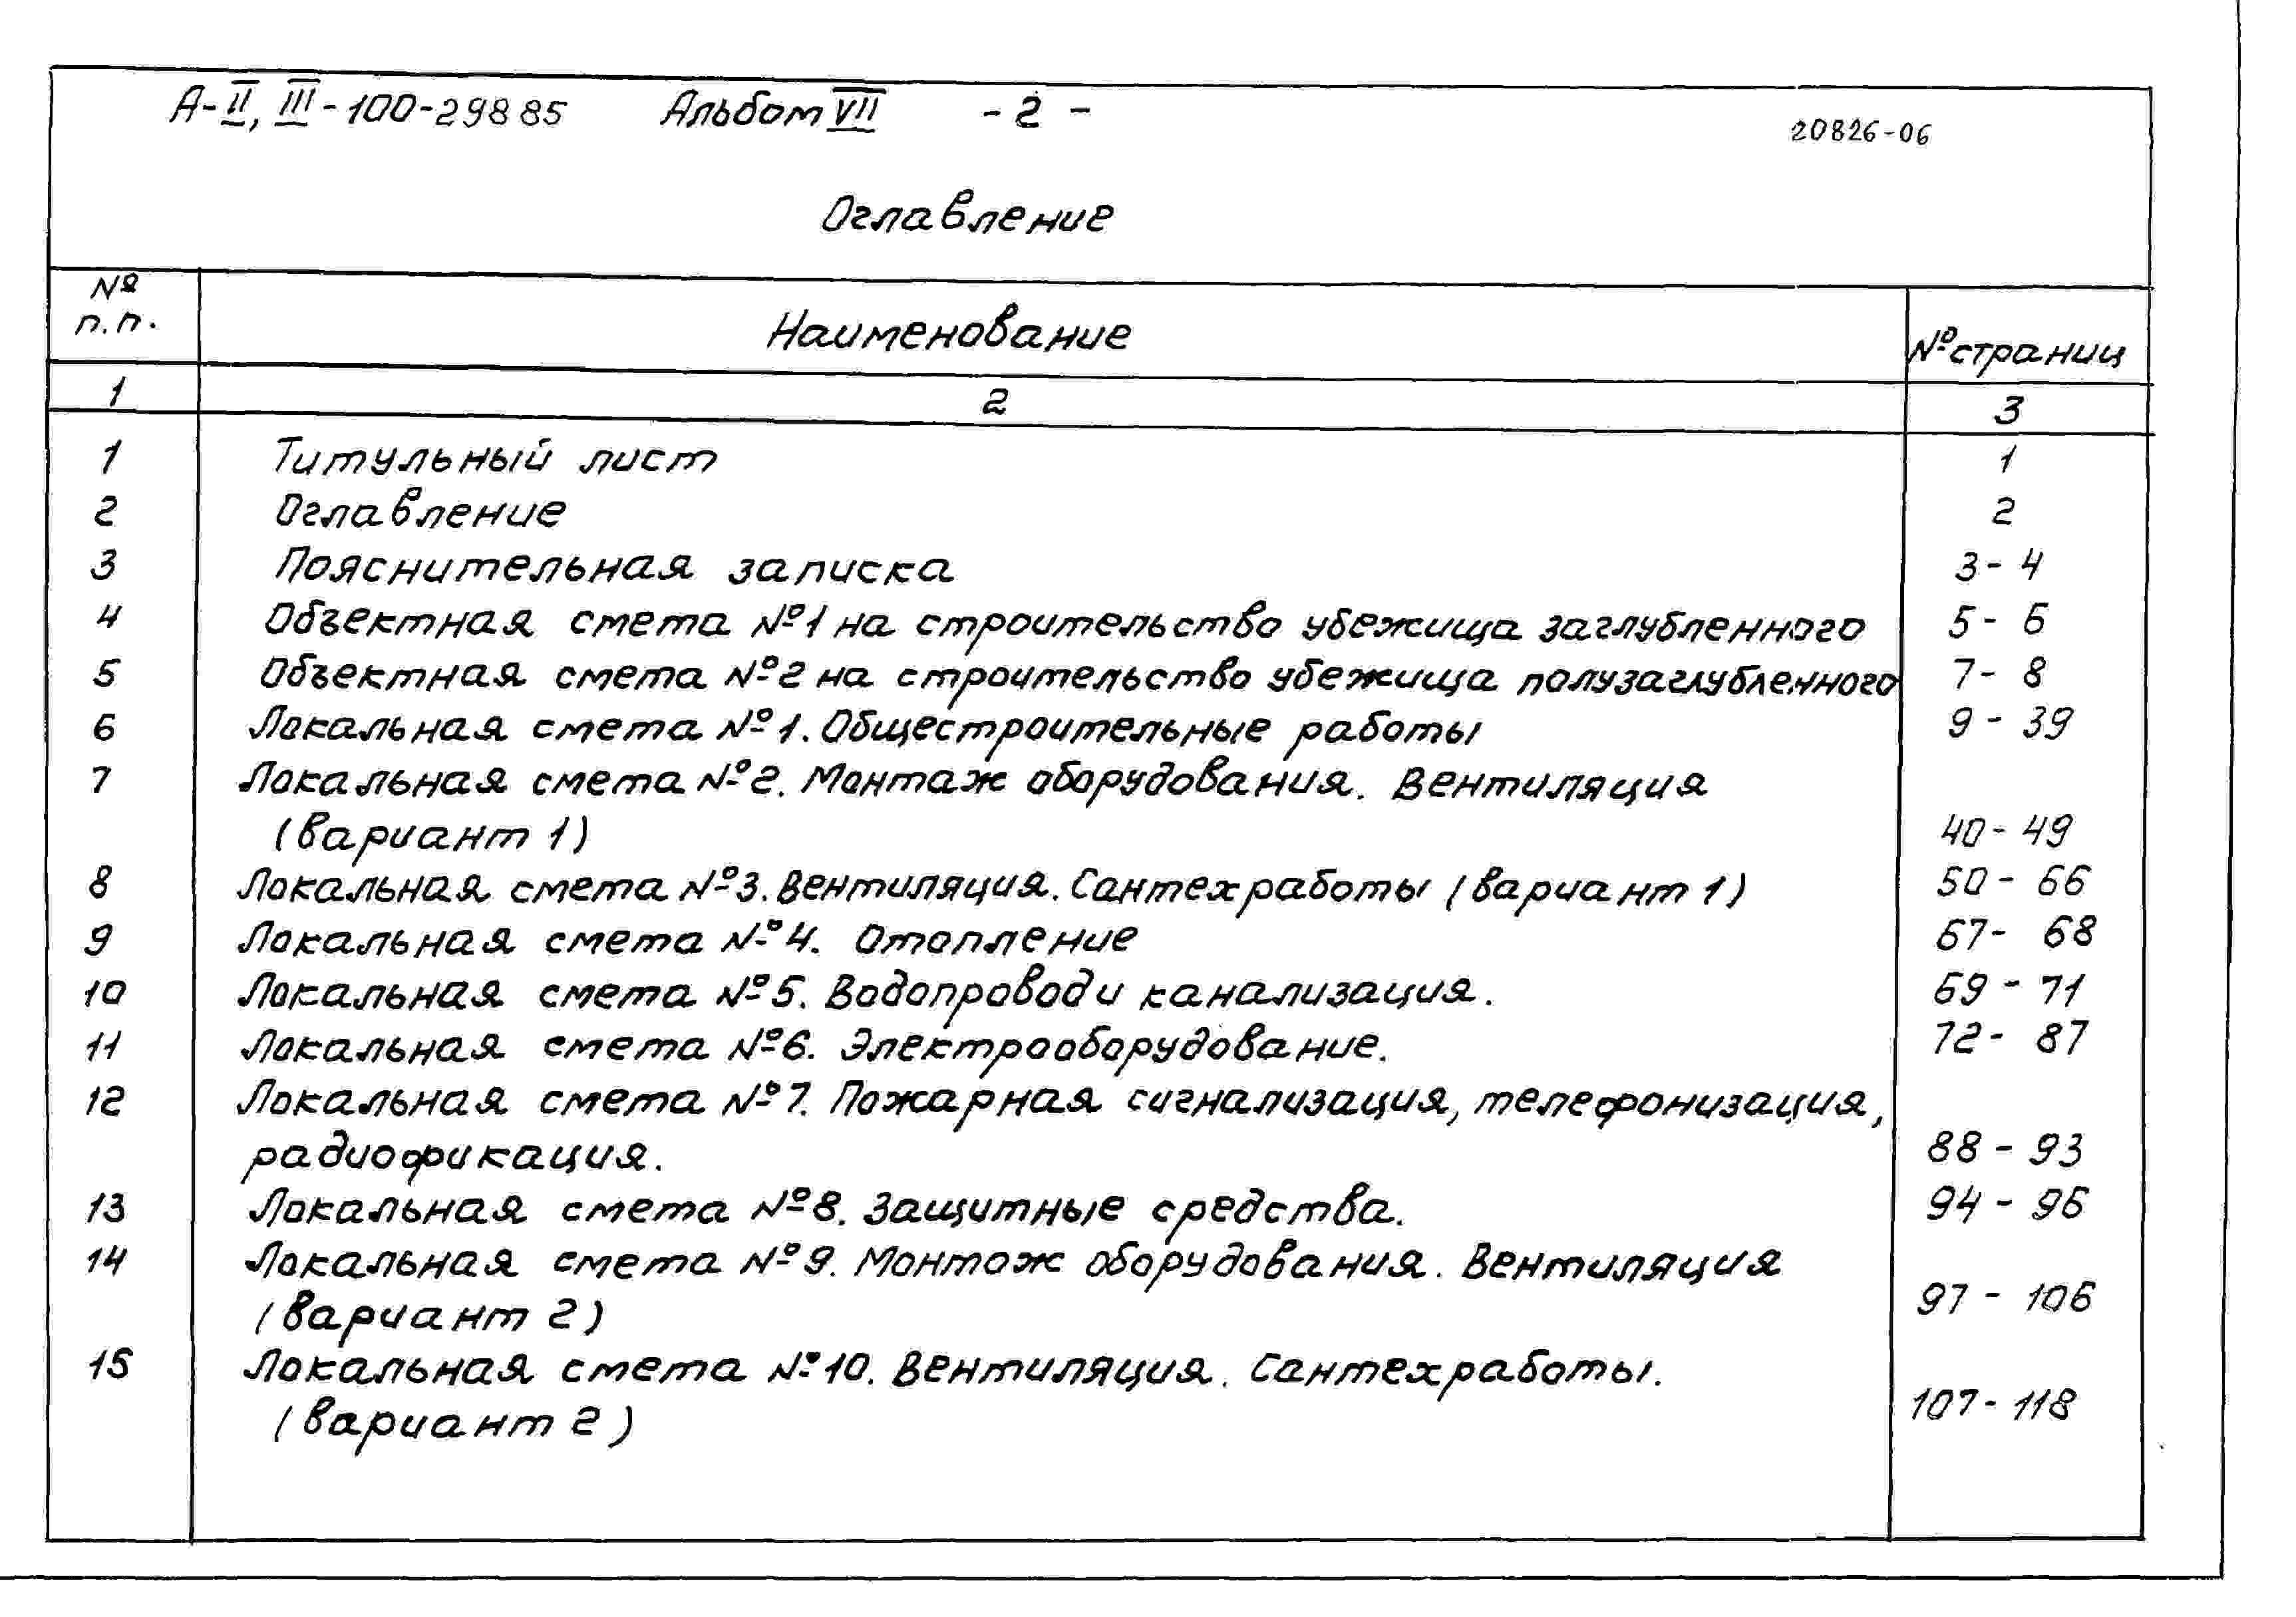 А-II, III-100-298 85 Альбом VII - 2 -
20826-06
Оглавление
№ п.п. Наименование № страниц
1 2 3
1 Титульный лист 1
2 Оглавление 2
3 Пояснительная записка 3- 4
4 Объектная смета №1 на строительство убежища заглубленного 5- 6
5 Объектная смета №2 на строительство убежища полузаглубленного 7- 8
6 Локальная смета №1. Общестроительные работы 9 - 39
7 Локальная смета №2. Монтаж оборудования. Вентиляция
(вариант 1) 40- 49
8 Локальная смета №3. Вентиляция. Сантехработы (вариант 1) 50- 66
9 Локальная смета №4. Отопление 67- 68
10 Локальная смета №5. Водопровод и канализация. 69 - 71
11 Локальная смета №6. Электрооборудование. 72- 87
12 Локальная смета №7. Пожарная сигнализация, телефонизация,
радиофикация. 88 - 93
13 Локальная смета №8. Защитные средства. 94 - 96
14 Локальная смета №9. Монтаж оборудования. Вентиляция
(вариант 2) 97 - 106
15 Локальная смета №10. Вентиляция. Сантехработы.
(вариант 2) 107- 118